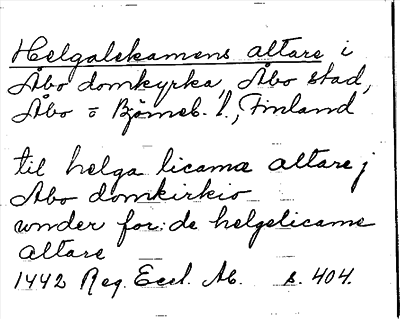 Helgalekamens altare i
Åbo domkyrka, Åbo stad,
Åbo o Björneb. l., Finland
til helga licama altare j
Abo domkirkio
under for:de helgelicams
altare
1442 Reg. Eccl. Ab. s. 404.